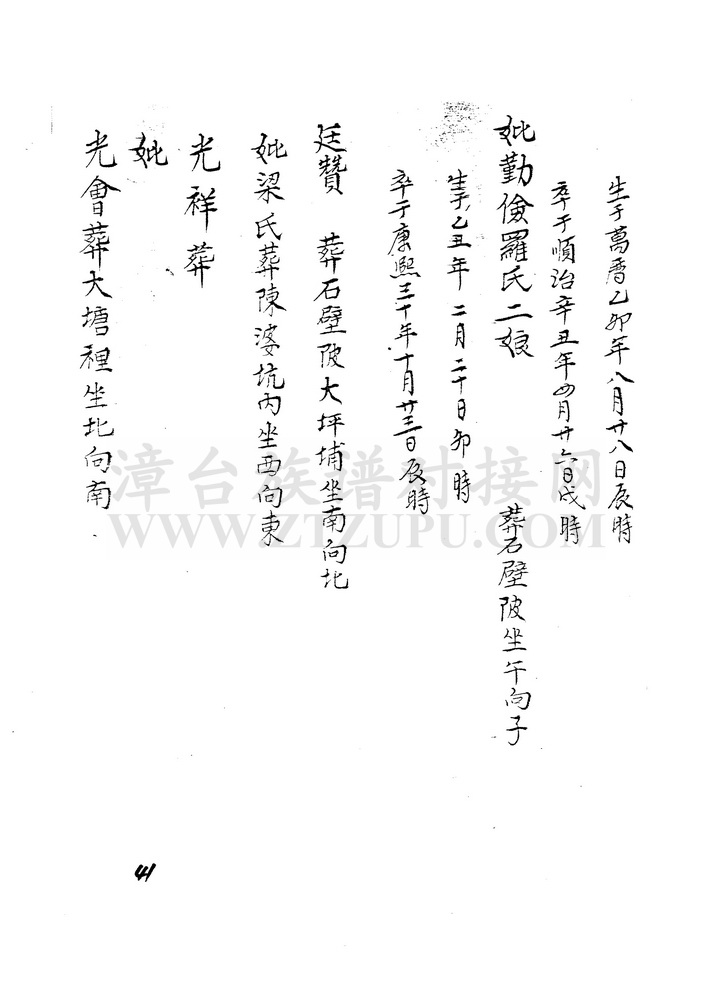 生于萬曆乙卯年八月廿八日辰時
卒于順治辛丑年四月廿六日戌時
妣勤儉羅氏二娘 葬石壁陂坐午向子
生于乙丑年二月二十日卯時
卒于康熙三十年十月廿三日辰時
廷贊 葬石壁陂大坪埔坐南向北
妣梁氏葬陳婆坑內坐西向東
光祥葬
妣
光會葬大塘裡坐北向南
漳台族谱对接网
WWW.ZTZUPU.COM
41